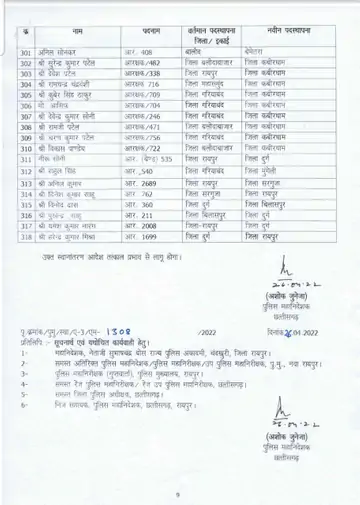 क्र नाम पदनाम वर्तमान पदस्थापना जिला/ इकाई नवीन पदस्थापना
301 अनिल सोनकर आर. 408 बालोद बेमेतरा
302 श्री सुरेन्द्र कुमार पटेल आरक्षक/482 जिला बलौदाबाजार जिला कबीरधाम
303 श्री देवेश पटेल आरक्षक/338 जिला रायपुर जिला कबीरधाम
304 श्री रामचन्द्र चंद्रवंशी आरक्षक 716 जिला महासमुंद जिला कबीरधाम
305 श्री कुबेर सिंह ठाकुर आरक्षक/709 जिला गरियाबंद जिला कबीरधाम
306 मो. आसिफ आरक्षक/704 जिला गरियाबंद जिला कबीरधाम
307 श्री देवेन्द्र कुमार सोनी आरक्षक/246 जिला गरियाबंद जिला कबीरधाम
308 श्री रामजी पटेल आरक्षक/471 जिला बलौदाबाजार जिला कबीरधाम
309 श्री चरण कुमार पटेल आरक्षक/756 जिला गरियाबंद जिला कबीरधाम
310 श्री विकास पाण्डेय आरक्षक/722 जिला बलौदाबाजार जिला कबीरधाम
311 नीरू सोनी आर. (बैण्ड) 535 जिला रायपुर जिला दुर्ग
312 श्री राहुल सिंह आर.,540 जिला गरियाबंद जिला मुंगेली
313 श्री अनिल कुमार आर. 2689 जिला रायपुर जिला सरगुजा
314 श्री दिनेश कुमार साहू आर. 762 जिला सरगुजा जिला रायपुर
315 श्री विनोद दास आर. 360 जिला दुर्ग जिला बिलासपुर
316 श्री साहू आर. 211 जिला बिलासपुर जिला दुर्ग
317 श्री कुमार नारंग आर. 2008 जिला रायपुर जिला दुर्ग
318 श्री कुमार मिश्रा आर. 1699 जिला दुर्ग जिला रायपुर
उक्त स्थानांतरण आदेश तत्काल प्रभाव से लागू होगा।
26.04.22
(अशोक जुनेजा)
पुलिस महानिदेशक
छत्तीसगढ़
पृ.क्रमांक/पुमु/स्था/ए-3/एम- 1308 /2022 दिनांक 26.04.2022
प्रतिलिपि :- सूचनार्थ एवं यथोचित कार्यवाही हेतु।
1- महानिदेशक, नेताजी सुभाषचंद्र बोस राज्य पुलिस अकादमी, चंदखुरी, जिला रायपुर।
2- समस्त अतिरिक्त पुलिस महानिदेशक/पुलिस महानिरीक्षक/उप पुलिस महानिरीक्षक, पु.मु., नवा रायपुर।
3- पुलिस महानिरीक्षक (गुप्तवार्ता), पुलिस मुख्यालय, रायपुर।
4- समस्त रेंज पुलिस महानिरीक्षक/ रेंज उप पुलिस महानिरीक्षक, छत्तीसगढ़।
5- समस्त जिला पुलिस अधीक्षक, छत्तीसगढ़।
6- निज सहायक, पुलिस महानिदेशक, छत्तीसगढ़, रायपुर।
26.04.22
(अशोक जुनेजा)
पुलिस महानिदेशक
छत्तीसगढ़
9